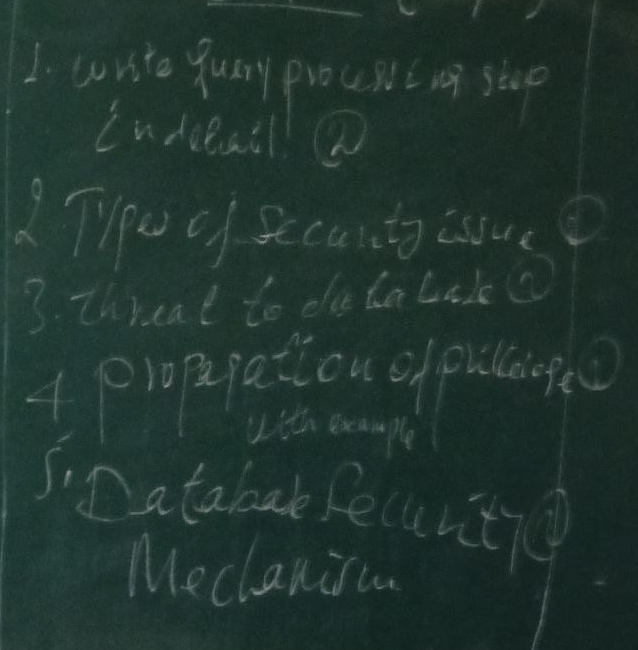 1. write Query processing step
in detail. (2)
2 Types of Security issue (1)
3. threat to database (1)
4 propagation of privilege (1)
with example
5. Database Security (1)
Mechanism